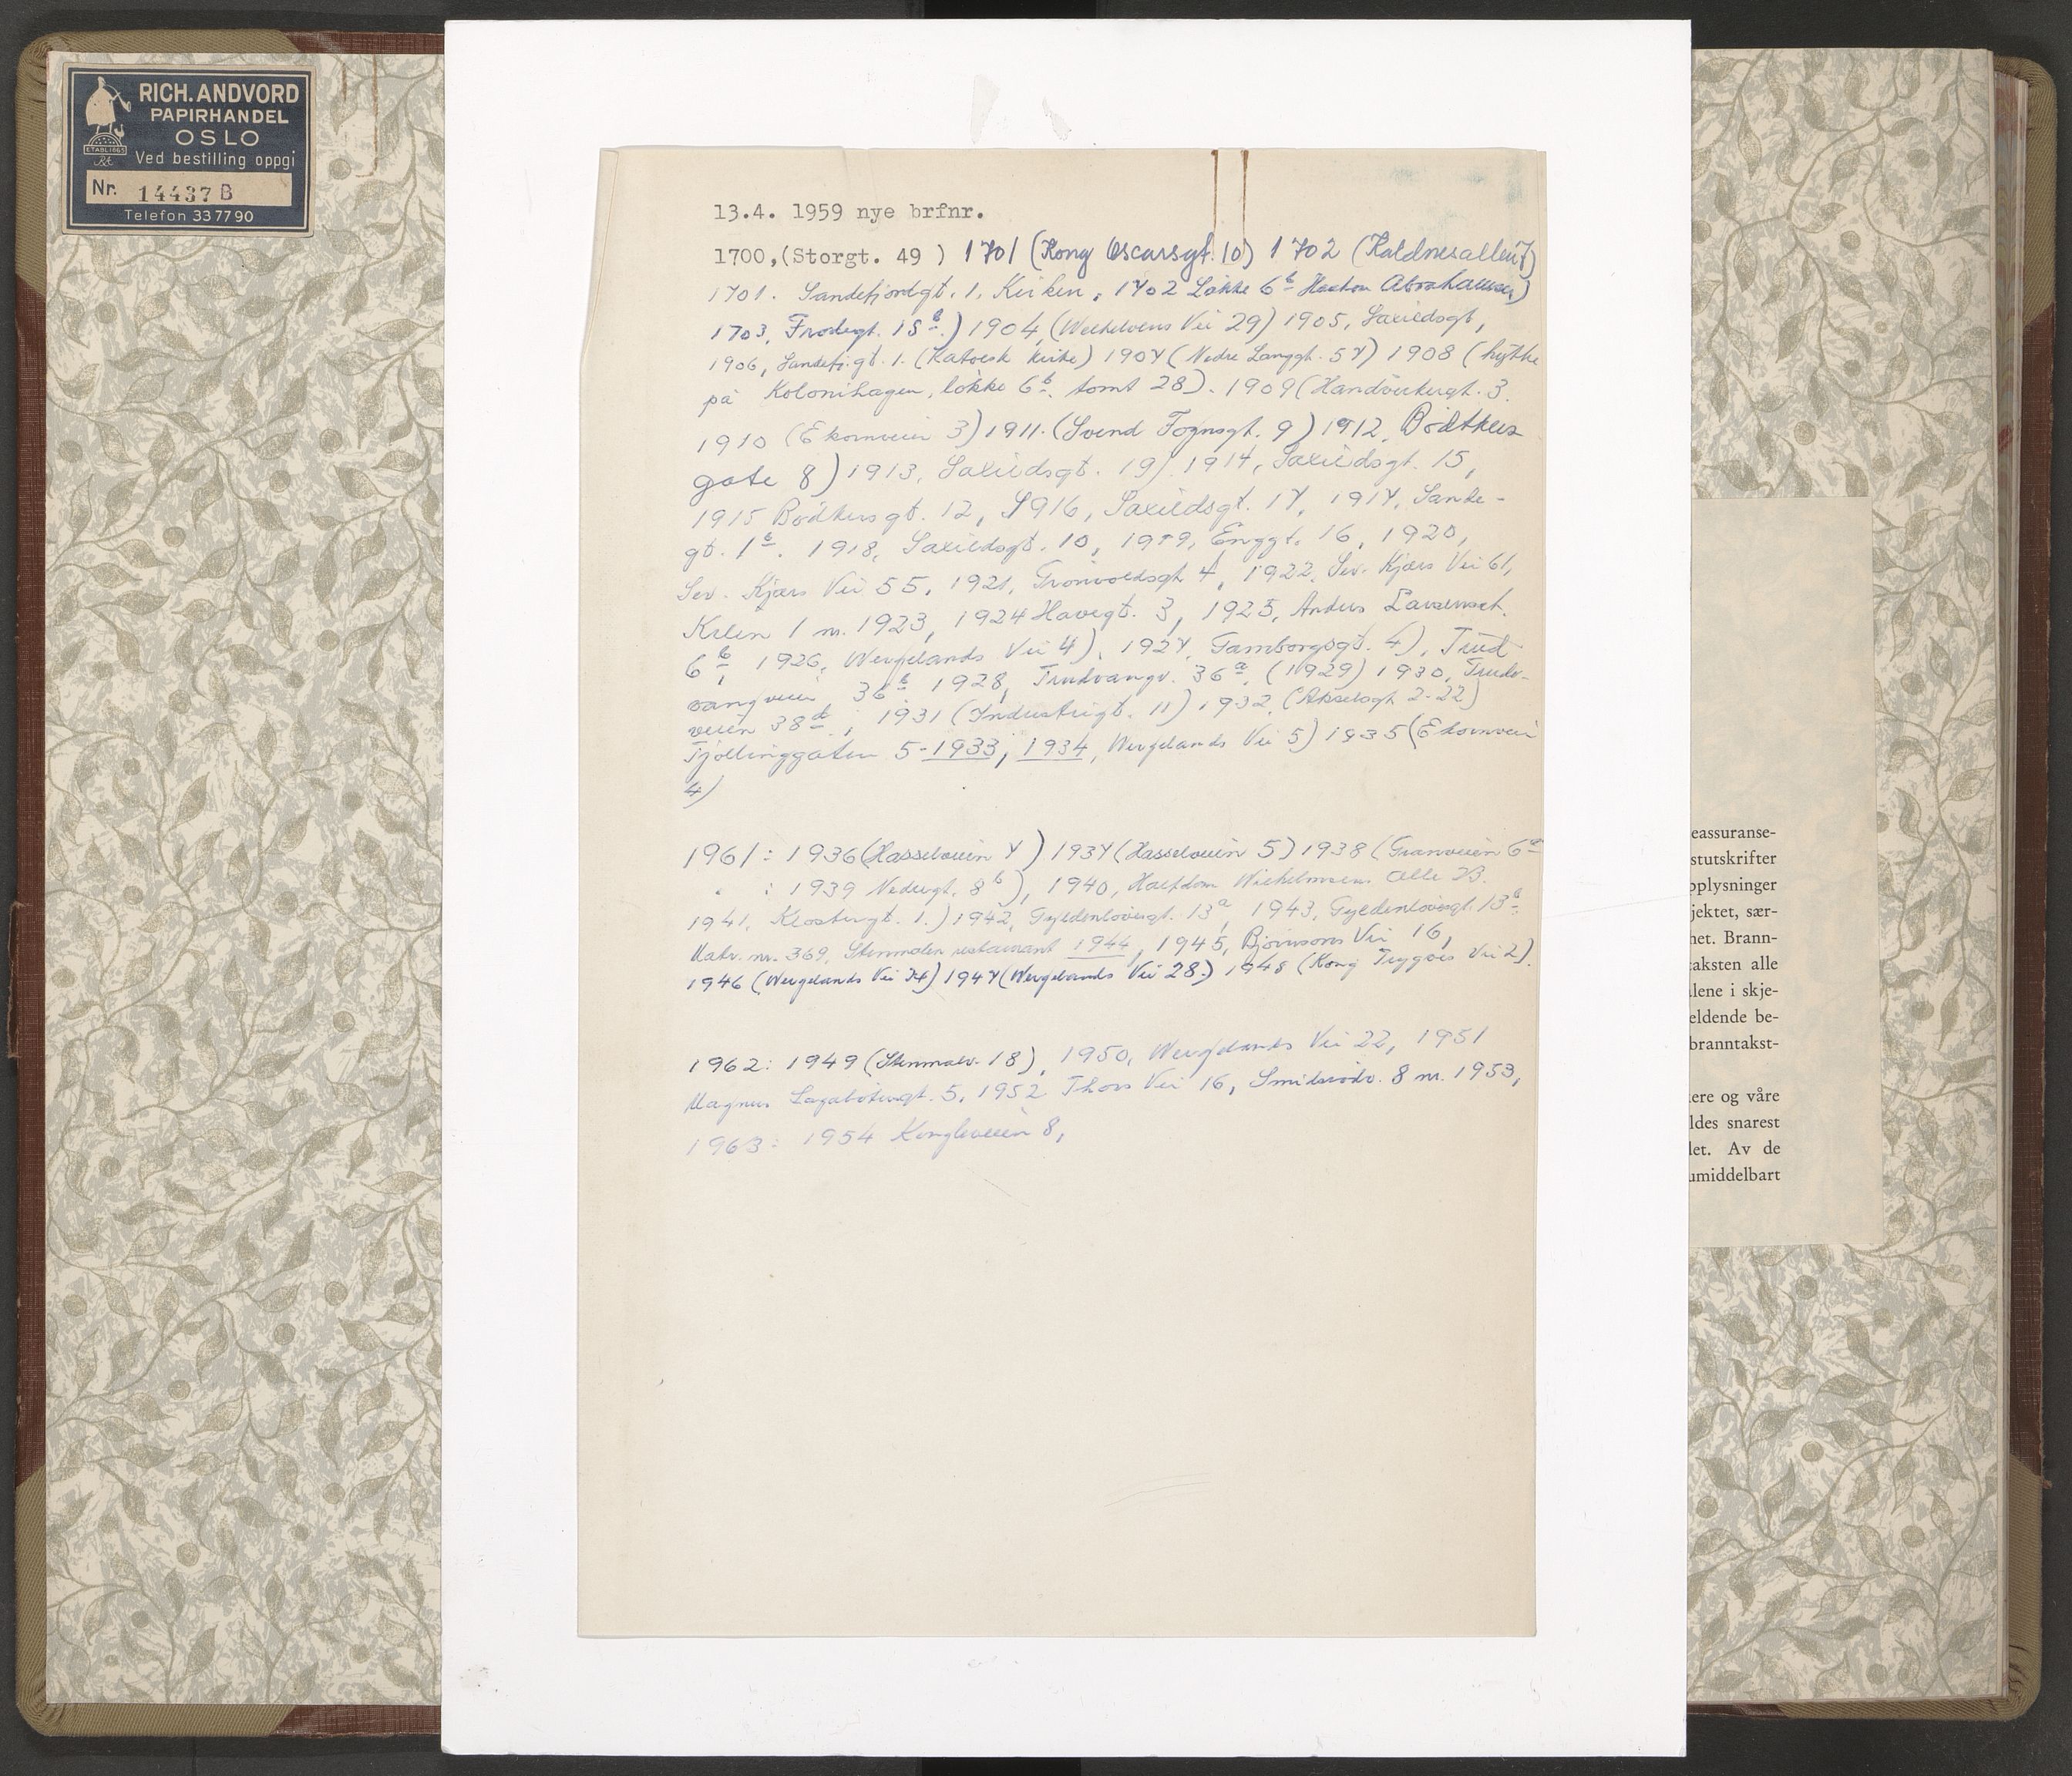 RICH. ANDVORD
PAPIRHANDEL
OSLO
ETABL. 1865
Ved bestilling oppgi
Nr. 14437 B
Telefon 337790
13.4. 1959 nye brfnr.
1700,(Storgt. 49 ) 1701 (Kong Oscarsgt. 10) 1702 (Kaldnesalleen 7)
1701. Sandefjordgt. 1. Kirken, 1702 Løkke 6b Haakon Abrahamsen)
1703, Frodegt. 15b.) 1904, (Wilhelmsens Vei 29) 1905, Saxildsgt,
1906, Sandefj.gt. 1. (Katolsk kirke) 1907 (Nedre Langgt. 57) 1908 (hytte
på Kolonihagen, løkke 6b. tomt 28). 1909 (Handverkergt. 3.
1910 (Ekornveien 3) 1911. (Svend Foynsgt. 9) 1912, Bødtkers
gate 8) 1913, Saxildsgt. 19). 1914, Saxildsgt. 15,
1915 Bødtkersgt. 12, 1916, Saxildsgt. 17, 1917, Sande-
gt. 1b. 1918, Saxildsgt. 10, 1919, Enggt. 16, 1920,
Sev. Kjærs Vei 55, 1921, Grønvoldsgt 4, 1922, Sev. Kjærs Vei 61,
Kilen 1 nr. 1923, 1924 Havegt. 3, 1925, Anders Larsensgt.
6b, 1926, Wergelands Vei 4), 1927, Famborgsgt. 4), Trud
vangveien 36b 1928, Trudvangv. 36a, (1929) 1930, Trudv-
veien 38d; 1931 (Industrigt. 11) 1932, (Akselsgt 2-22)
Tjøllinggaten 5-1933; 1934, Wergelands Vei 5) 1935 (Ekornveien
4)
1961: 1936 (Hasselveien 7) 1937 (Hasselveien 5) 1938 (Granveien 6a
" : 1939 Nedregt. 8b), 1940, Halfdan Wilhelmsens Alle 23.
1941, Klostergt. 1.) 1942, Gyldenløvesgt. 13a, 1943, Gyldenløvesgt. 13b.
Matr. nr. 369, Stenmalen restaurant 1944, 1945, Bjørnsons Vei 16,
1946 (Wergelands Vei 24) 1947 (Wergelands Vei 28.) 1948 (Kong Tryggves Vei 2).
1962: 1949 (Stenmalv. 18), 1950, Wergelands Vei 22, 1951
Magnus Lagabøtersgt. 5, 1952 Thors Vei 16, Smidsrødv. 8 nr. 1953,
1963: 1954 Kongleveien 8,
eassuranse-
stutskrifter
pplysninger
jektet, sær-
het. Brann-
taksten alle
lene i skje-
eldende be-
branntakst-
ere og våre
ldes snarest
let. Av de
umiddelbart